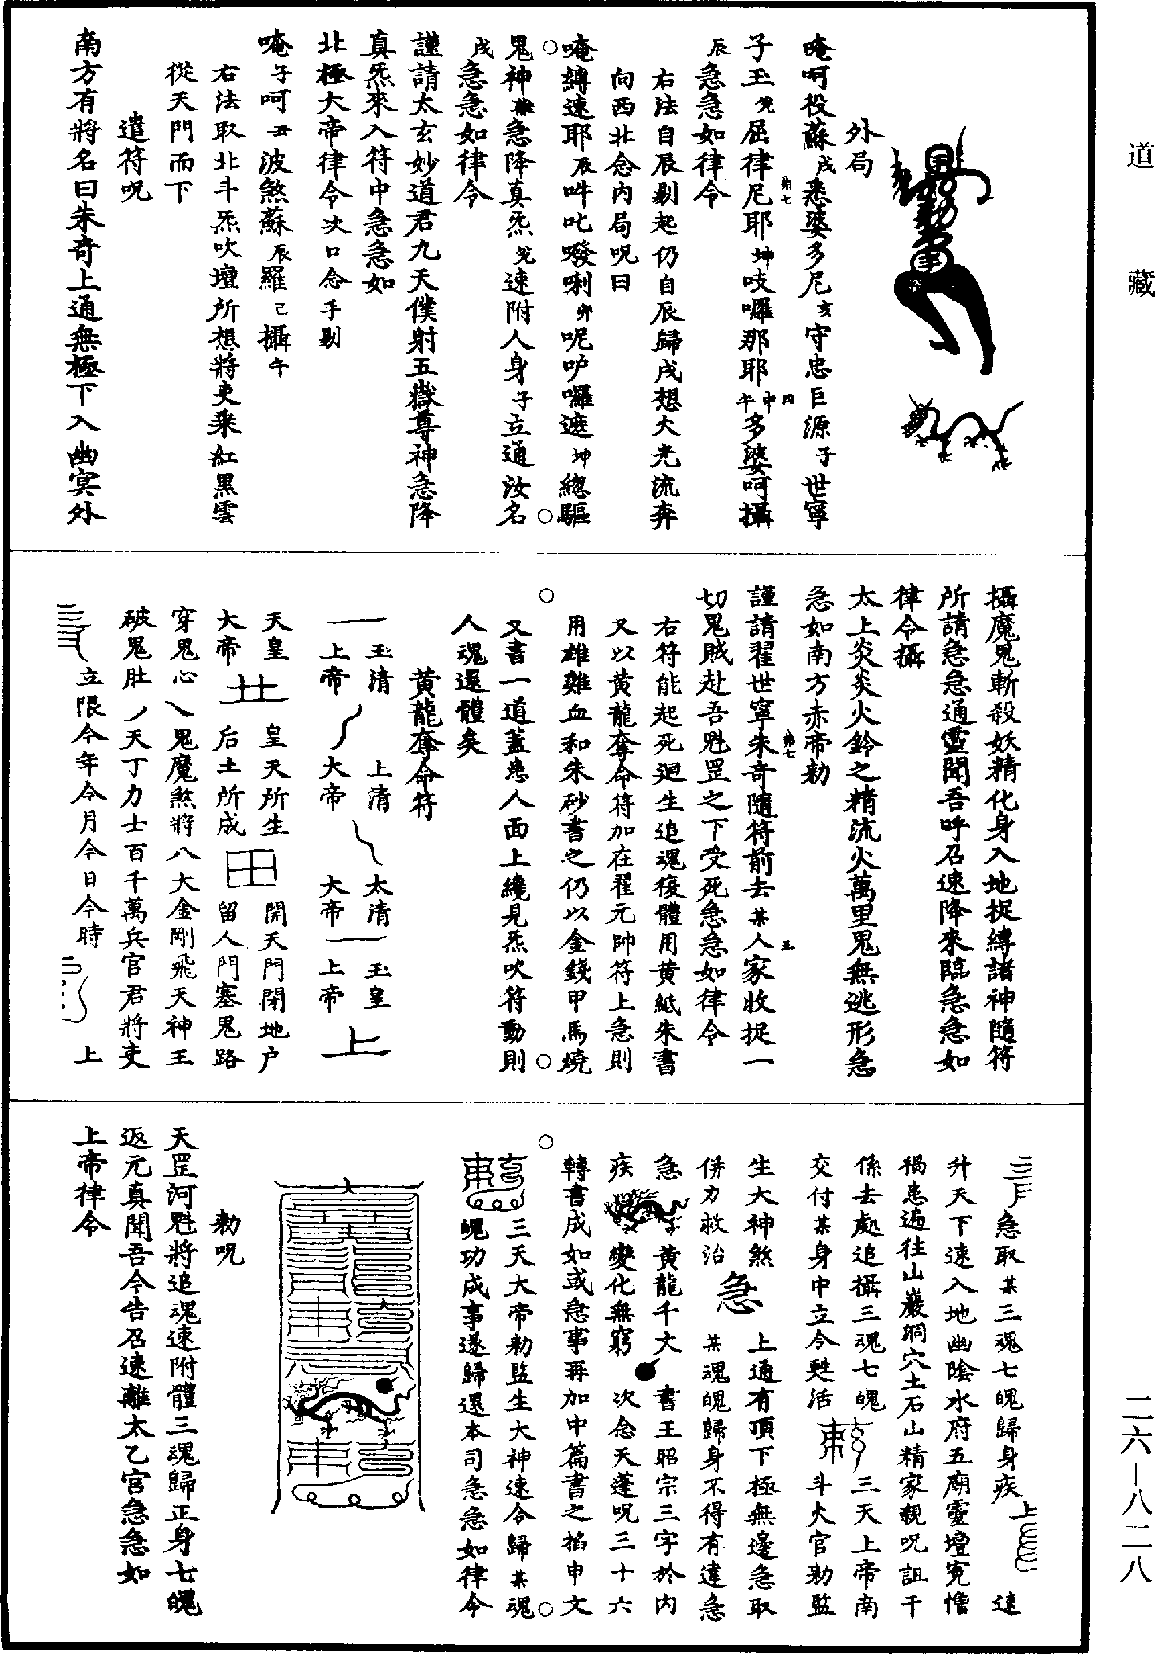 道藏
外局
唵呵役蘇戌悉婆多尼亥守忠巨源子世寧
子玉兜屈律尼耶坤吱囉那耶午申多婆呵攝
辰急急如律令
右法自辰剔起仍自辰歸戌想大光流奔
向西北念内局呪曰
唵縛速耶辰吽叱㗶唎卯呢吵囉遮坤總驅
鬼神雞急降真炁兜速附人身子立通汝名
戌急急如律令
謹請太玄妙道君九天僕射五嶽尊神急降
真炁來入符中急急如
北極大帝律令次口念手剔
唵子呵丑波煞蘇辰羅己攝午
右法取北斗炁吹壇所想將吏乘紅黑雲
從天門而下
遣符呪
南方有將名曰朱奇上通無極下入幽冥外
攝魔鬼斬殺妖精化身入地捉縛諸神隨符
所請急急通靈聞吾呼召速降來臨急急如
律令攝
太上炎炎火鈴之精流火萬里鬼無逃形急
急如南方赤帝勑
謹請翟世寧朱奇隨符前去某人家收捉一
切鬼賊赴吾魁罡之下受死急急如律令
右符能起死迴生追魂復體用黄紙朱書
又以黄龍奪命符加在翟元帥符上急則
用雄雞血和朱砂書之仍以金錢甲馬燒
又書一道蓋患人面上纔見炁吹符動則
人魂還體矣
黄龍奪命符
玉清 上清 太清 玉皇
上帝 大帝 大帝 上帝
天皇 皇天所生 開天門閉地户
大帝 后土所成 留人門塞鬼路
穿鬼心 鬼魔煞將八大金剛飛天神王
破鬼肚 天丁力士百千萬兵官君將吏
立限今年今月今日今時 上
急取某三魂七魄歸身疾 上 速
升天下速入地幽陰水府五廟靈壇寃憎
禍患遍往山巖洞穴土石山精家親呪詛干
係去處追攝三魂七魄 三天上帝南
交付某身中立令甦活 斗火官勑監
生大神煞 上通有頂下極無邊急取
併力救治 急 某魂魄歸身不得有違急
急 黄龍千丈 書王昭宗三字於内
疾 變化無窮 次念天蓬呪三十六
轉書成如或急事再加中篇書之掐申文
三天大帝勑監生大神速令歸某魂
魄功成事遂歸還本司急急如律令
勑呪
天罡河魁將追魂速附體三魂歸正身七魄
返元真聞吾今告召速離太乙宮急急如
上帝律令
二六—八二八